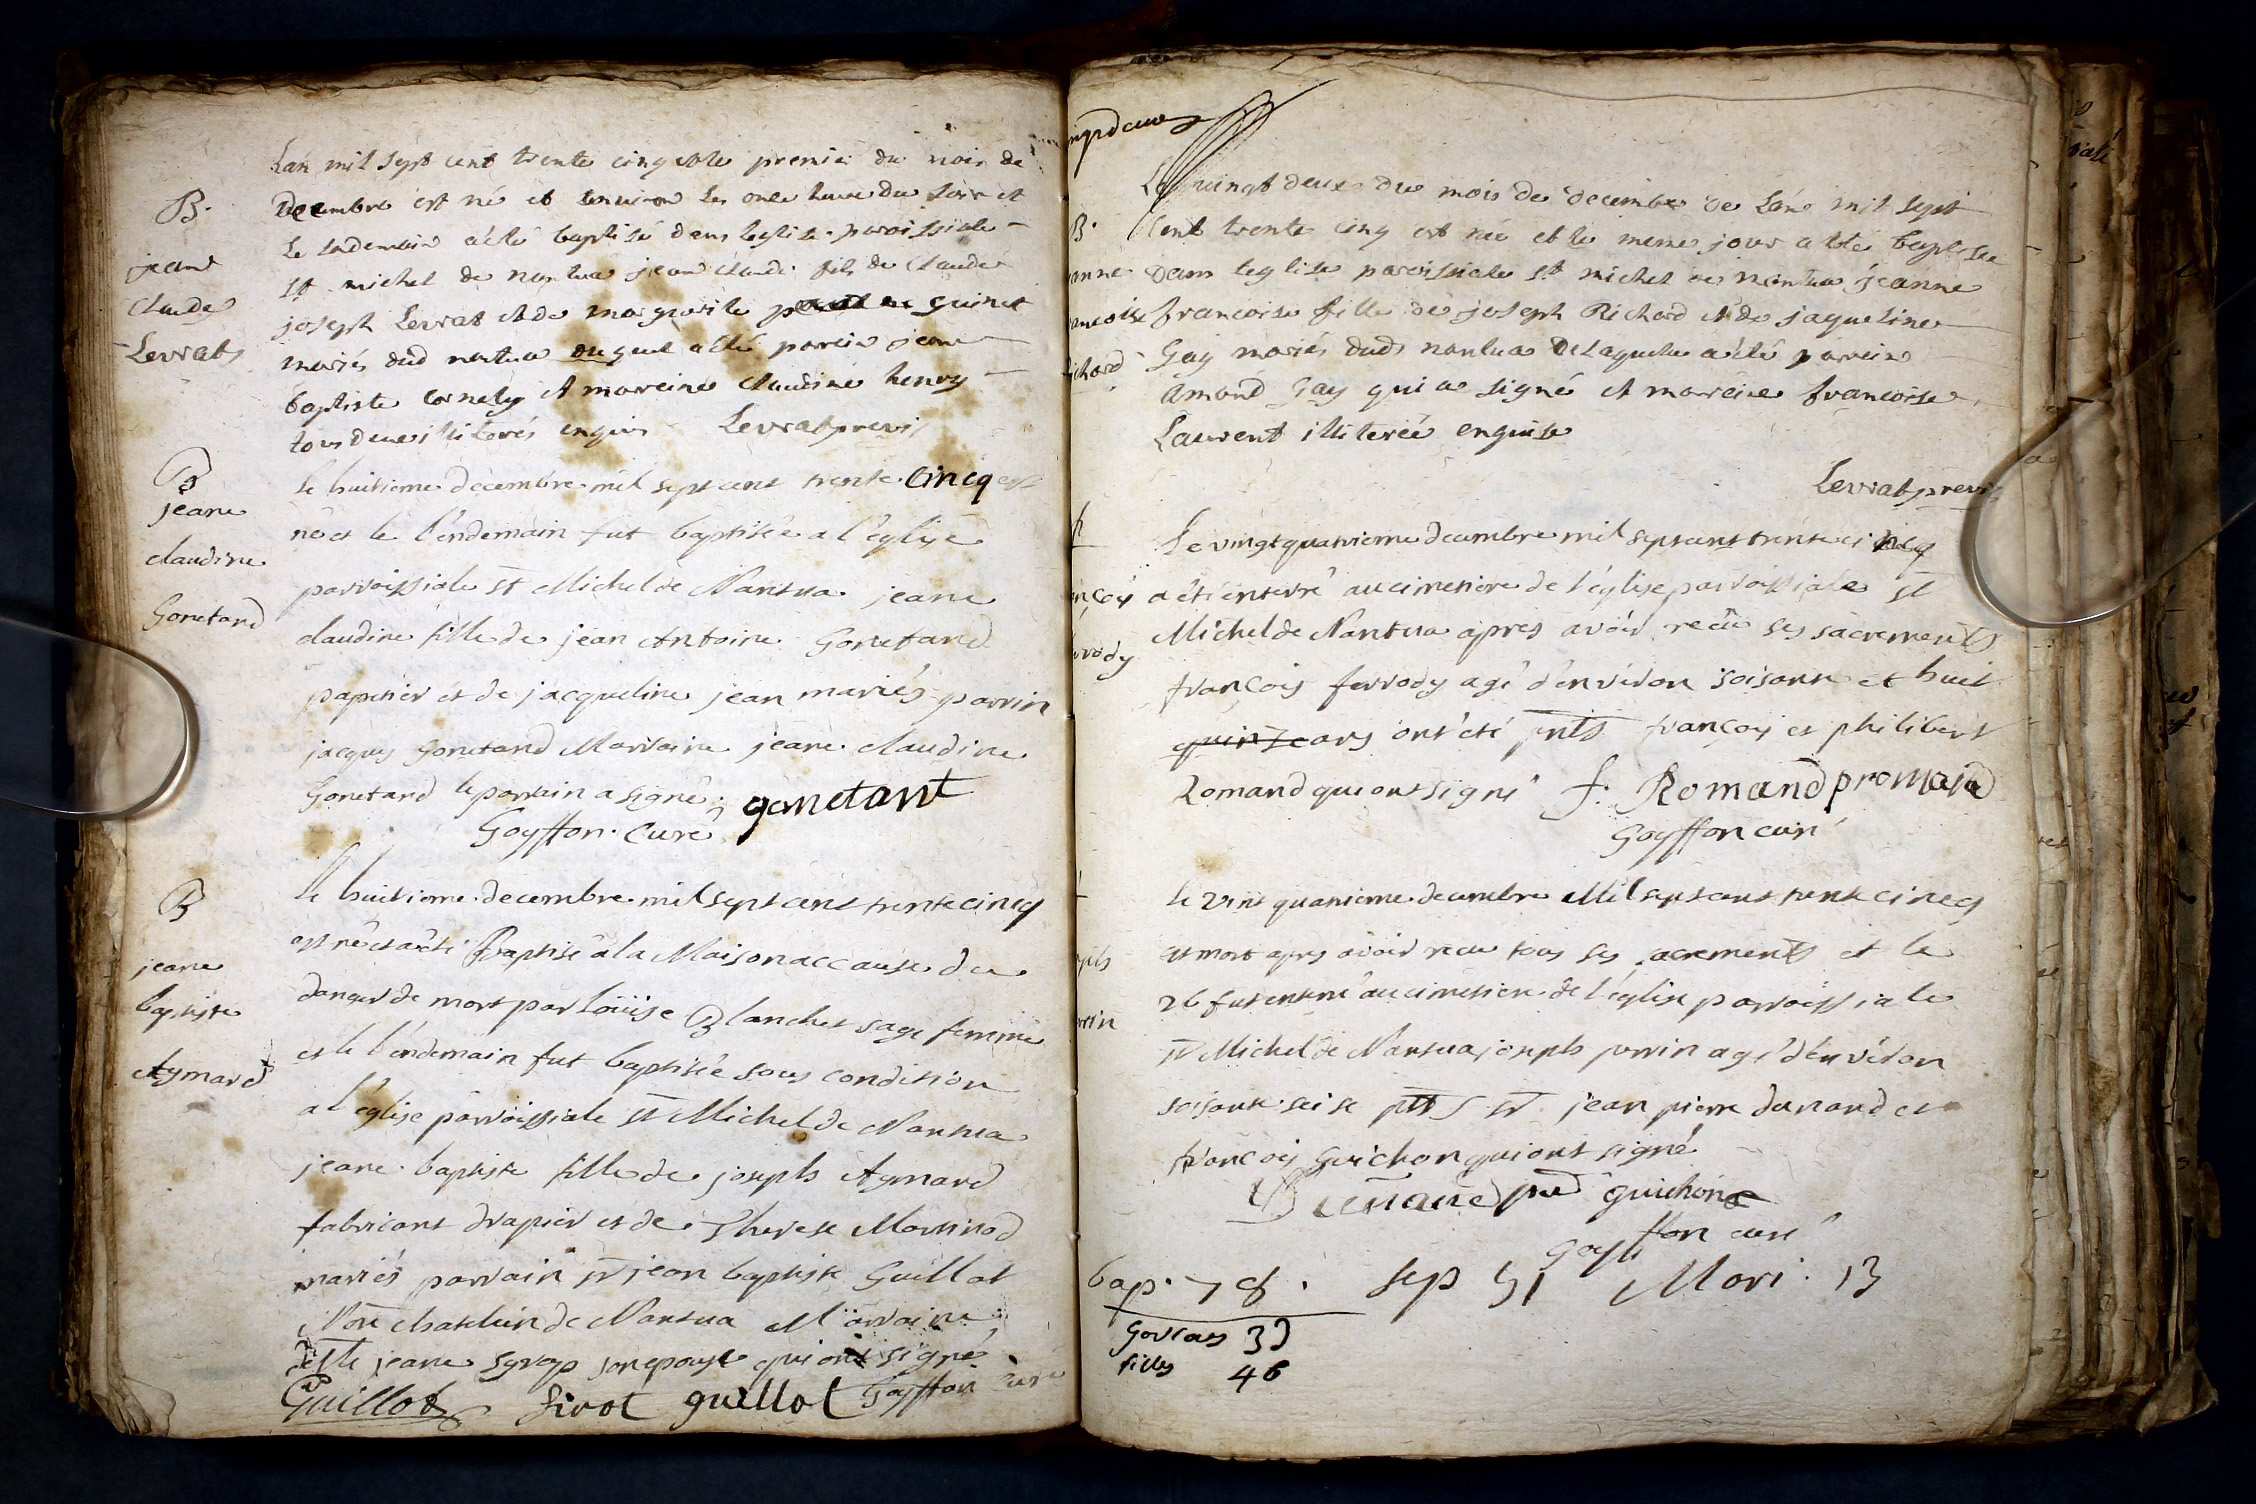 B.
jean
Claude
Levrat
Lan mil sept cent trente cinq et le premier du mois de
Decembre est né et environ les onze heure du soir et
le lendemain a été baptisé dans leglise paroissiale
St michel de nantua jean claude fils de Claude
joseph Levrat et de marguerite guinet
mariés dud nantua duquel a été parein jean
baptiste cornely et mareine claudine henry
tous deux illiterés enquis Levrat previs
B
jeane
claudine
Gonetand
le huitieme decembre mil sept cent trente cincq est
né et le l'endemain fut baptisée a l'église
parroissiale st Michel de Nantua jeane
claudine fille de jean Antoine Gonetand
papetier et de jacqueline jean mariés parrin
jacques gonetand Marraine jeane claudine
Gonetand le parrain a signé gonetant
Goyffon Curé
B
jeane
baptiste
Aymard
le huitieme decembre mil sept cent trente cincq
est né et a été Baptisé a la Maison a ccause du
danger de mort par Loüise Blanchet sage femme
et le l'endemain fut baptisée sous condition
a l'église parroissiale st Michel de Nantua
jeane baptiste fille de joseph Aymard
fabricant drapier et de Therese Martinod
mariés parrain sr jean baptiste Guillot
Nore chatelain de Nantua Marraine
delle jeane syrop son epouse qui ont signé
Guillot sirot guillot Goyffon curé
B.
anne
ancoise
ichard
Le vingt deux du mois de decembre de Lané mil sept
Cent trente cinq est née et le meme jour a été baptisée
dans leglise paroissiale st michel de nantua jeanne
francoise fille de joseph Richard et de jaqueline
Gay mariés dud nantua De laquelle a été parein
Amand Gay qui a signé et mareine francoise
Laurent illiterée enquise
Levrat previs
nçois
rrody
Le vingt quatrieme decembre mil sept cent trente cincq
a été enterré au cimetiere de l'église parroissiale st
Michel de Nantua apres avoir recû ses sacrements
françois ferrody agé d'environ soisante et huit
quinze ans ont été pnts françois et philibert
Romand qui ont signé f. Romand p romand
Goyffon curé
eph
rrin
le vint quatrieme decembre Mil sept cent trente cincq
est mort apres avoir recu tous ses sacrements et le
26 fut enterré au cimetiere de l'église parroissiale
st Michel de Nantua joseph perrin agé d'environ
soisante seise pnts sr jean pierre dunand et
françois Guichon qui ont signé
Dunand pnt guichon
Goyffon curé
bap. 78. sep 51 Mari. 13
Garcons 32
filles 46